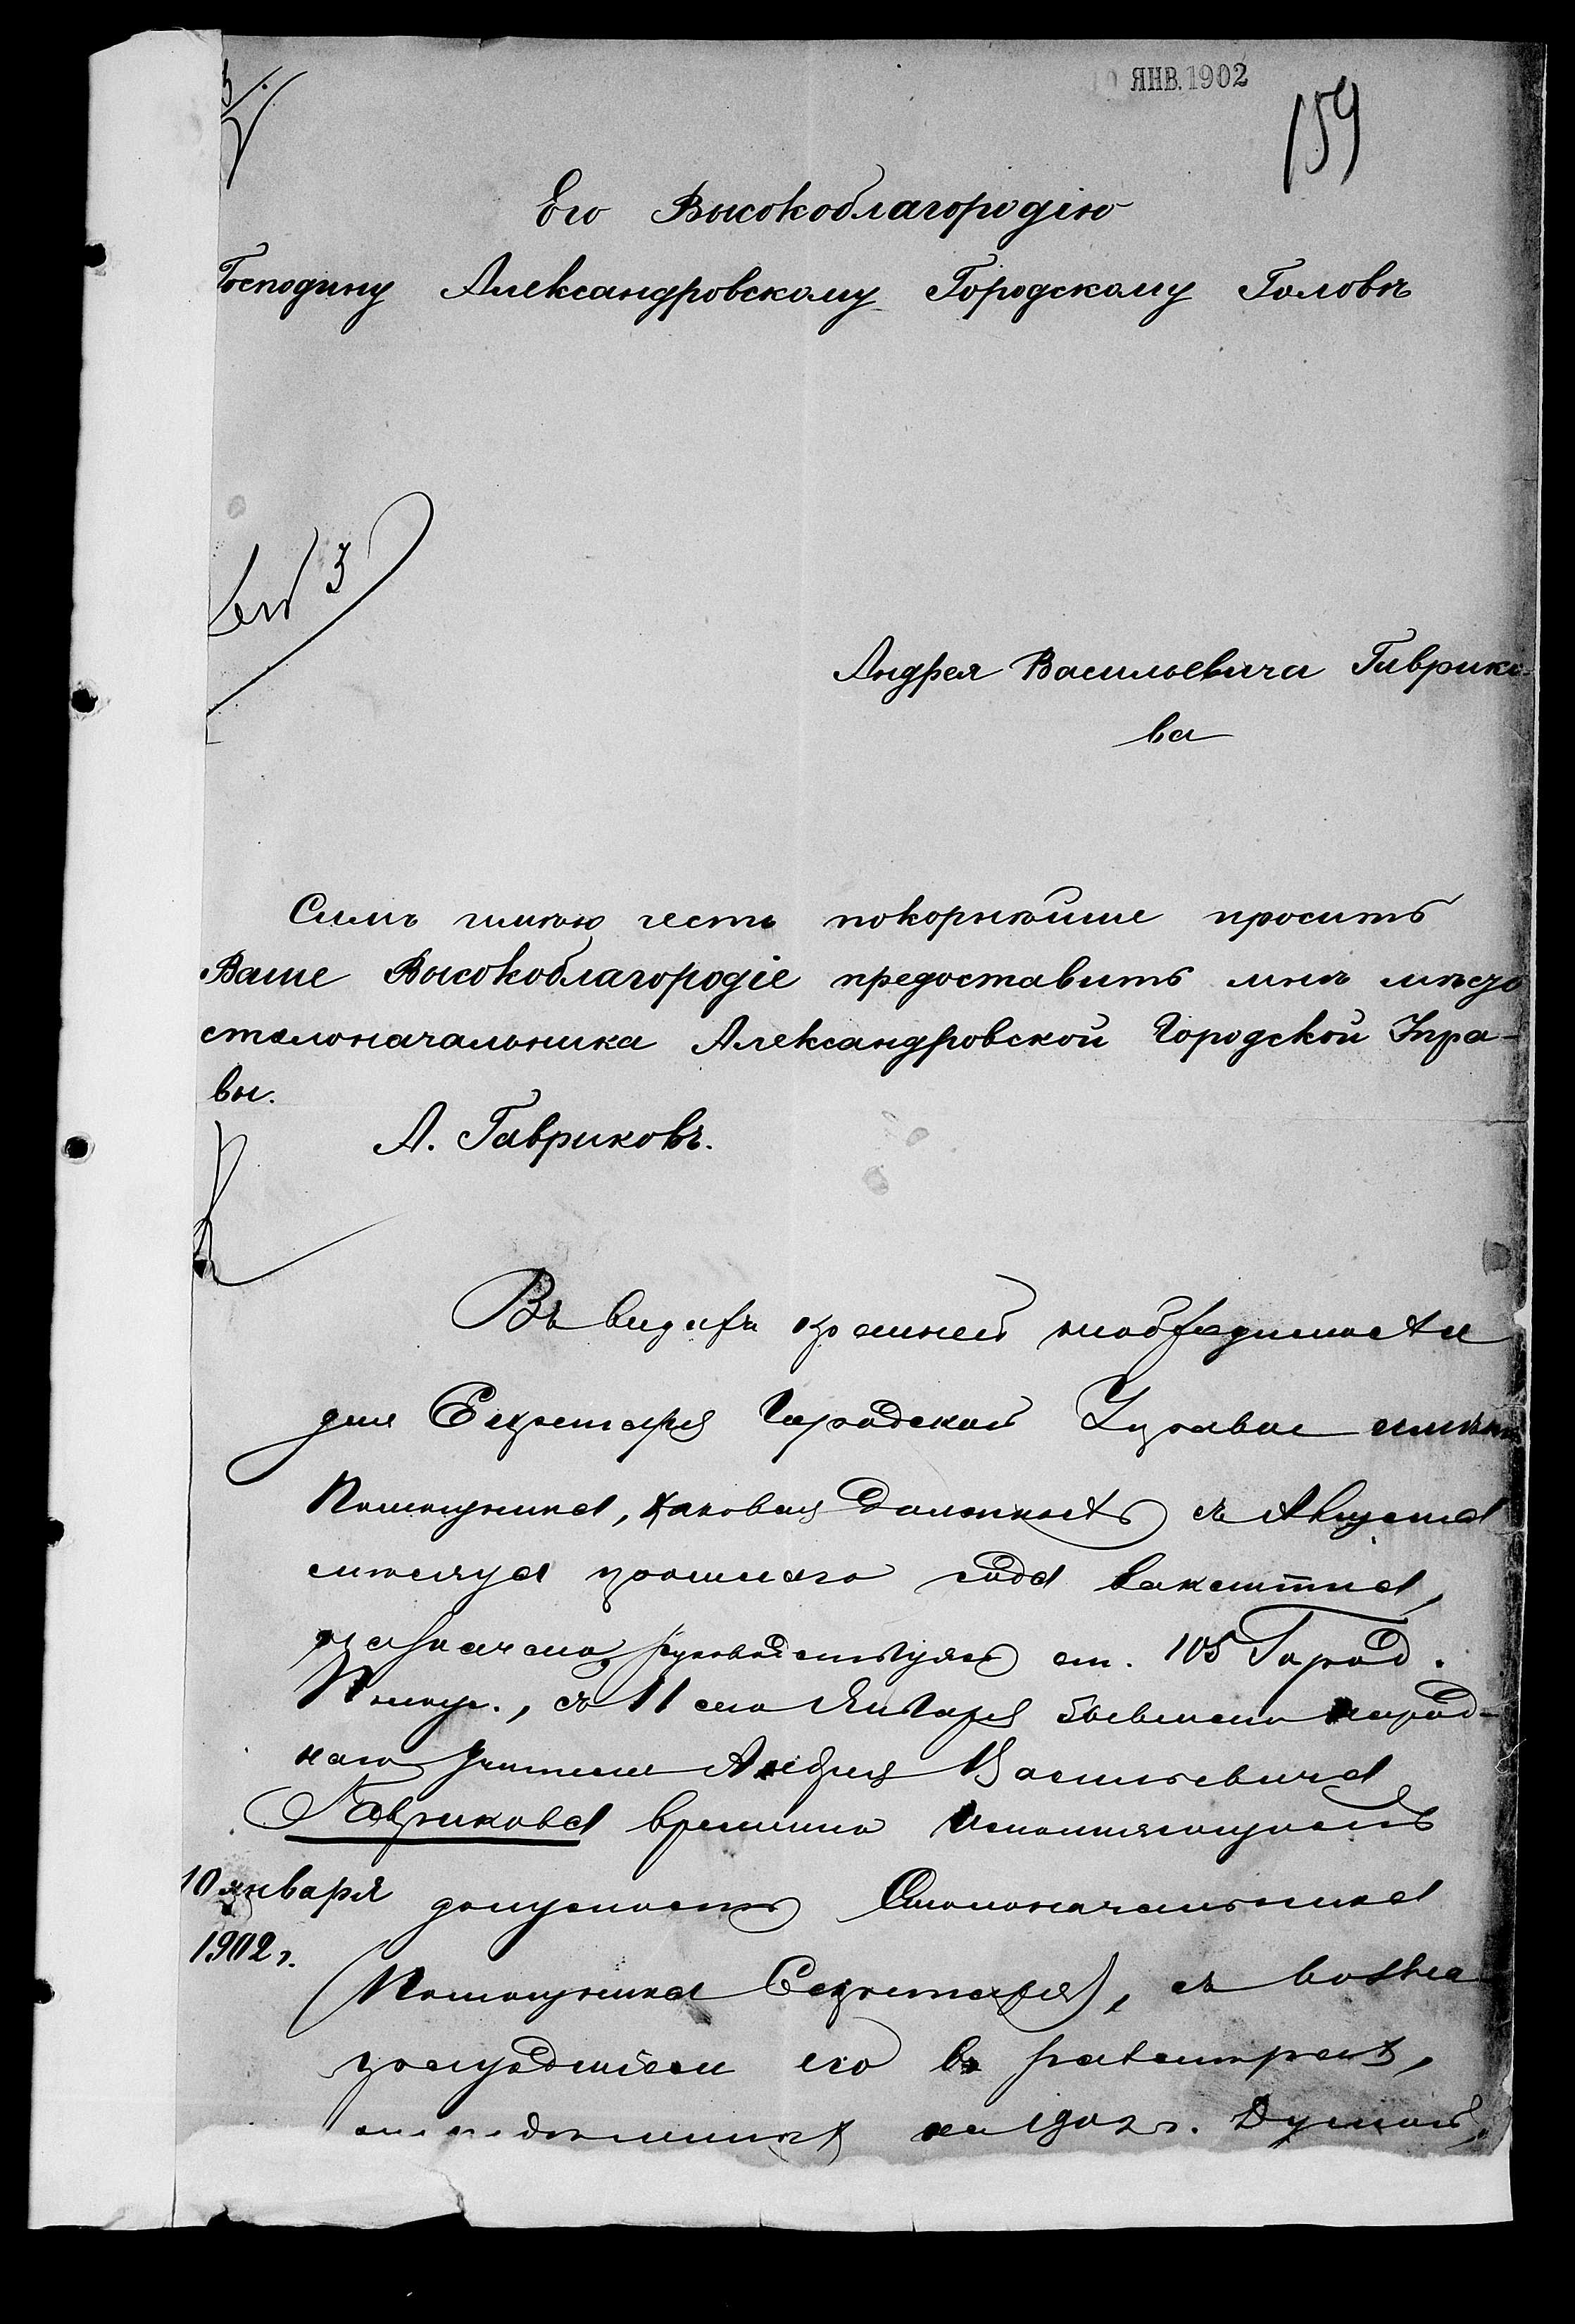 ЯНВ. 1902
159
Его Высокоблагородію
Господину Александровскому Городскому Головѣ
3
Андрея Васильевича Гаврико-
ва
Симъ имѣю честь покорнѣйше просить
Ваше Высокоблагородіе предоставить мнѣ мѣсто
столоначальника Александровской Городской Упра-
вы.
А. Гавриковъ.
Въ видахъ крайней необходимости
для Секретаря Городской Управы имѣть
Помощника, каковая должность съ Августа
мѣсяца прошлаго года вакантна,
назначаю, руководствуясь ст. 105 Город.
Полож., съ 11 сего Января бывшаго народ-
наго учителя Андрея Васильевича
Гаврикова временно исполняющимъ
10 января должность Столоначальника
1902 г.
(Помощника Секретаря), съ
его въ
на 1902 г. Думой,